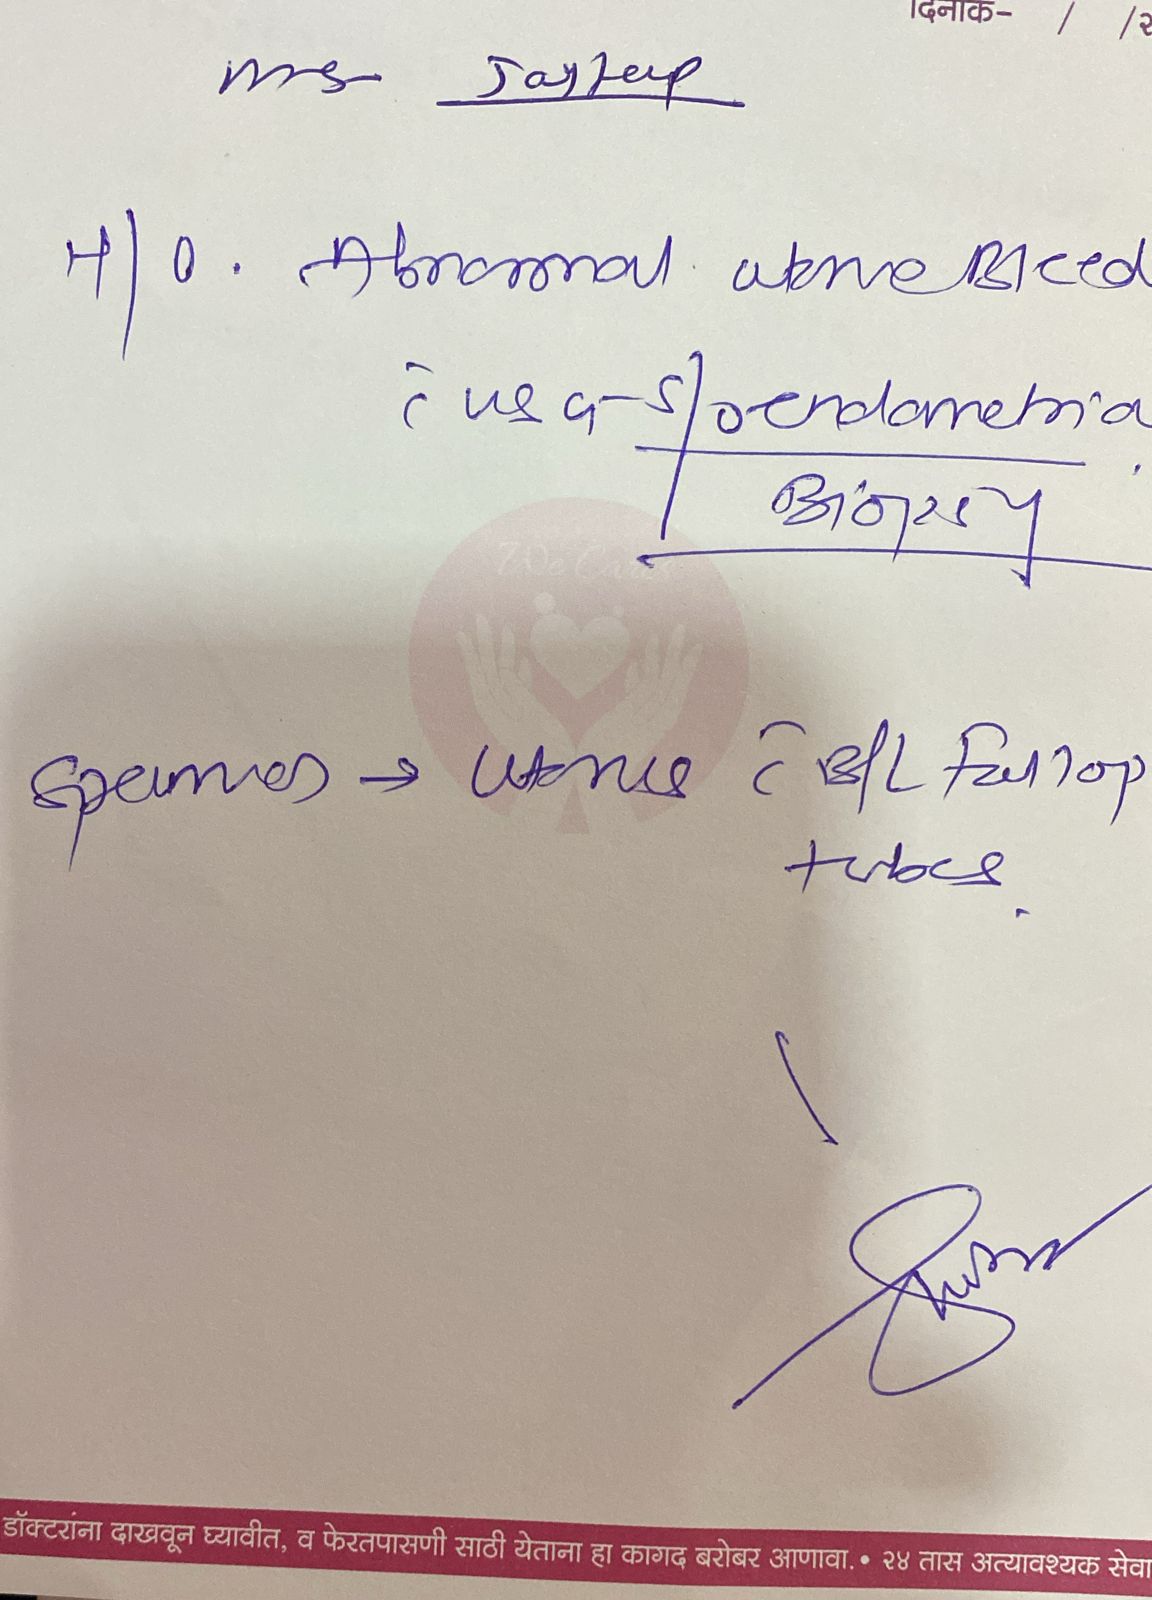 दिनांक- / /२
Mrs
H/O. Abnormal uterine Bleed
c̄ USG - S/o endometria
Biopsy
We Care
Specimen → Uterus c̄ B/L Fallop
tubes.
डॉक्टरांना दाखवून घ्यावीत, व फेरतपासणी साठी येताना हा कागद बरोबर आणावा. • २४ तास अत्यावश्यक सेवा